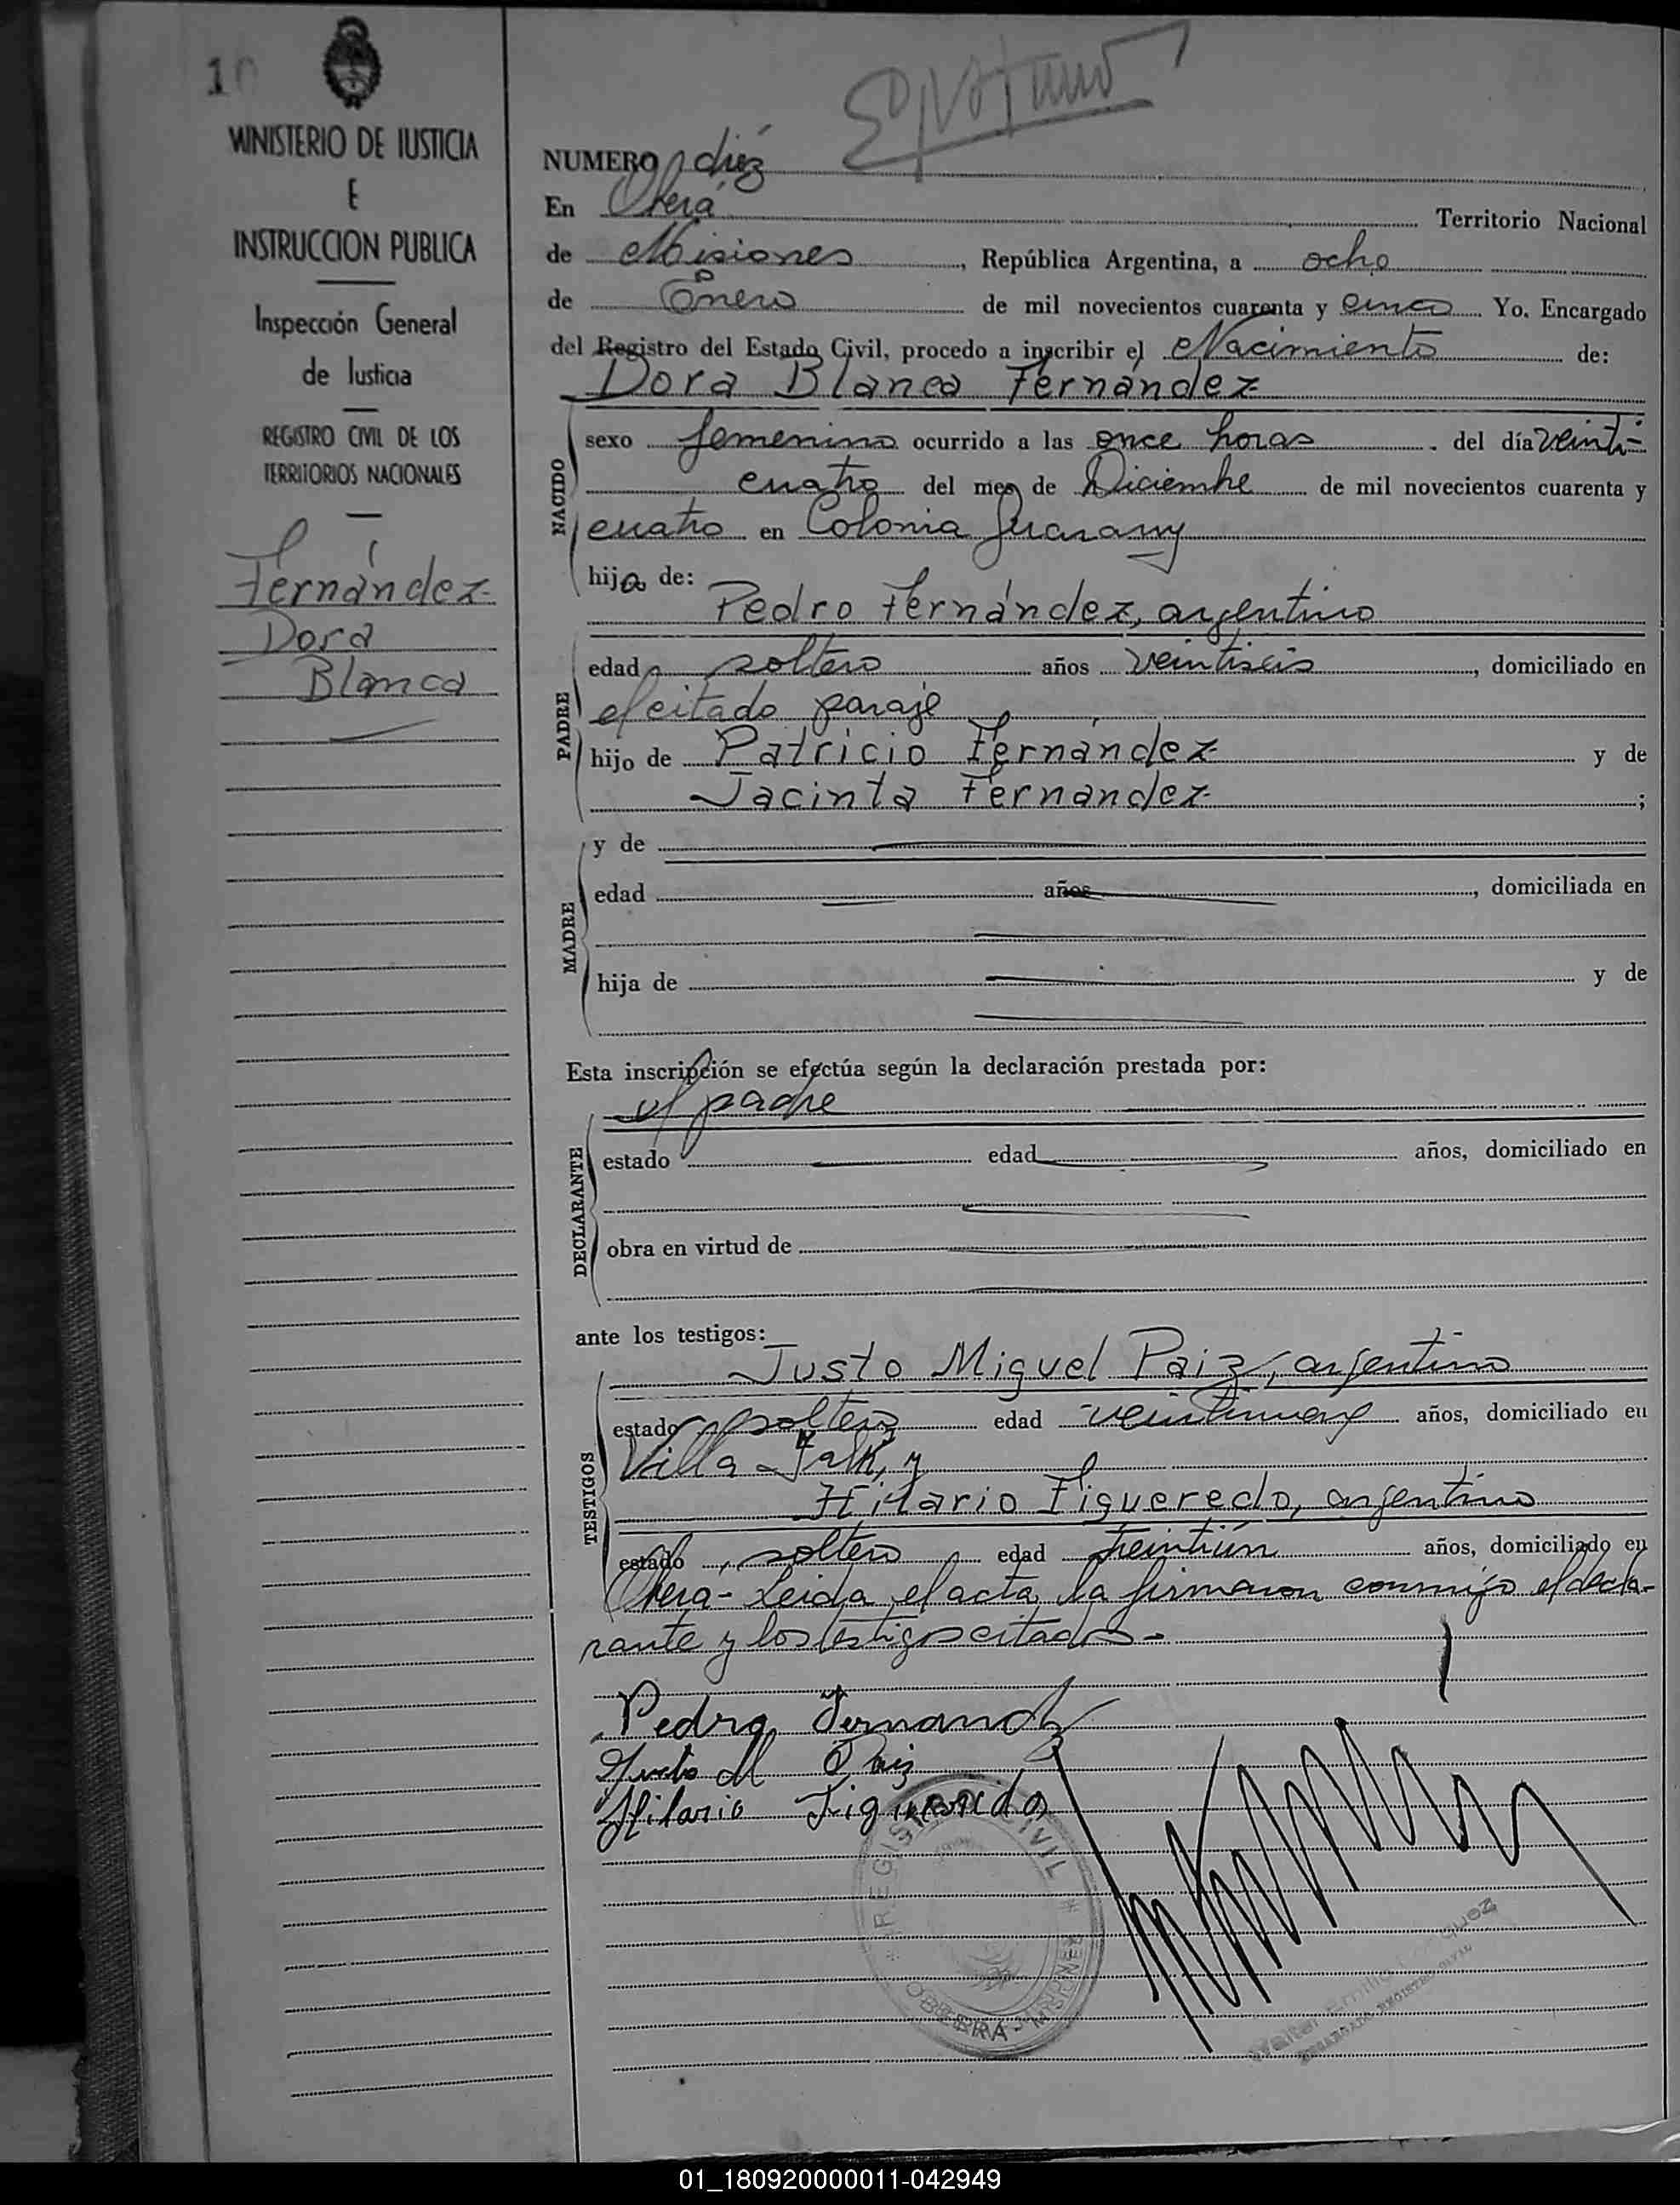 10
MINISTERIO DE JUSTICIA
E
INSTRUCCION PUBLICA
Inspección General
de Justicia
REGISTRO CIVIL DE LOS
TERRITORIOS NACIONALES
Fernández
Dora
Blanca
NUMERO diéz
En Oberá Territorio Nacional
de Misiones, República Argentina, a ocho
de Enero de mil novecientos cuarenta y cinco Yo. Encargado
del Registro del Estado Civil, procedo a inscribir el Nacimiento de:
Dora Blanca Fernández
NACIDO
sexo femenino ocurrido a las once horas del día veinti-
cuatro del mes de Diciembre de mil novecientos cuarenta y
cuatro en Colonia Guarany
hija de:
Pedro Fernández, argentino
PADRE
edad soltero años veintiseis, domiciliado en
el citado paraje
hijo de Patricio Fernández y de
Jacinta Fernandez ;
MADRE
y de
edad años, domiciliada en
hija de y de
Esta inscripción se efectúa según la declaración prestada por:
el padre
DECLARANTE
estado edad años, domiciliado en
obra en virtud de
ante los testigos:
Justo Miguel Paiz, argentino
TESTIGOS
estado soltero edad veintinueve años, domiciliado en
Villa y
Hilario Figueredo, argentino
estado soltero edad treintiún años, domiciliado en
Oberá- Leida el acta, la firmaron conmigo el decla-
rante y los testigos citados.-
Pedro Fernandez
Justo M Paiz
Hilario Figueredo
REGISTRO CIVIL
OBERA - MISIONES
ENCARGADO REGISTRO CIVIL
01_180920000011-042949